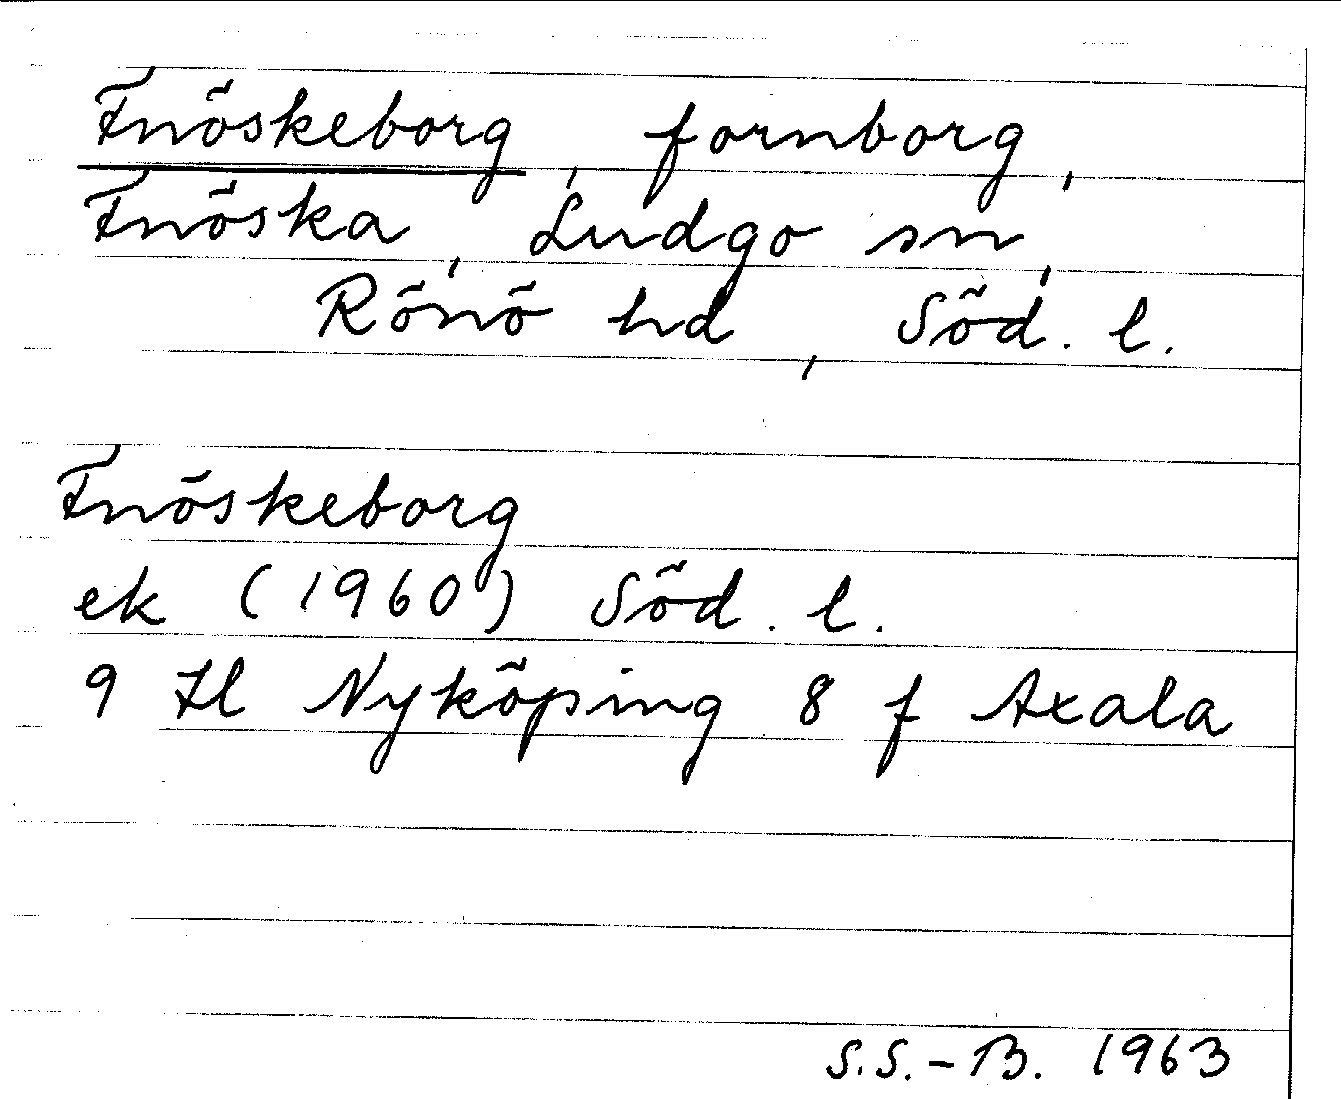 Fnöskeborg, fornborg,
Fnöska, Ludgo sn,
Rönö hd, Söd. l.
Fnöskeborg
ek (1960) Söd. l.
9 Hl Nyköping 8 f Axala
S.S.-B. 1963